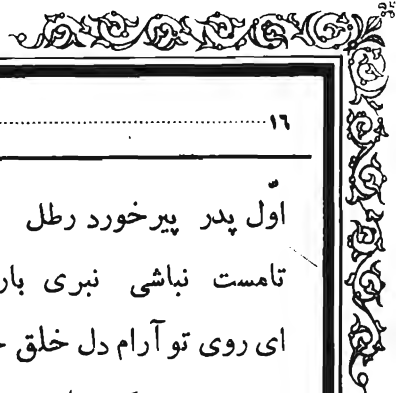 ١٦
اوّل پدر پیر خورد رطل
تامست نباشی نبری بار
ای روی تو آرام دل خلق